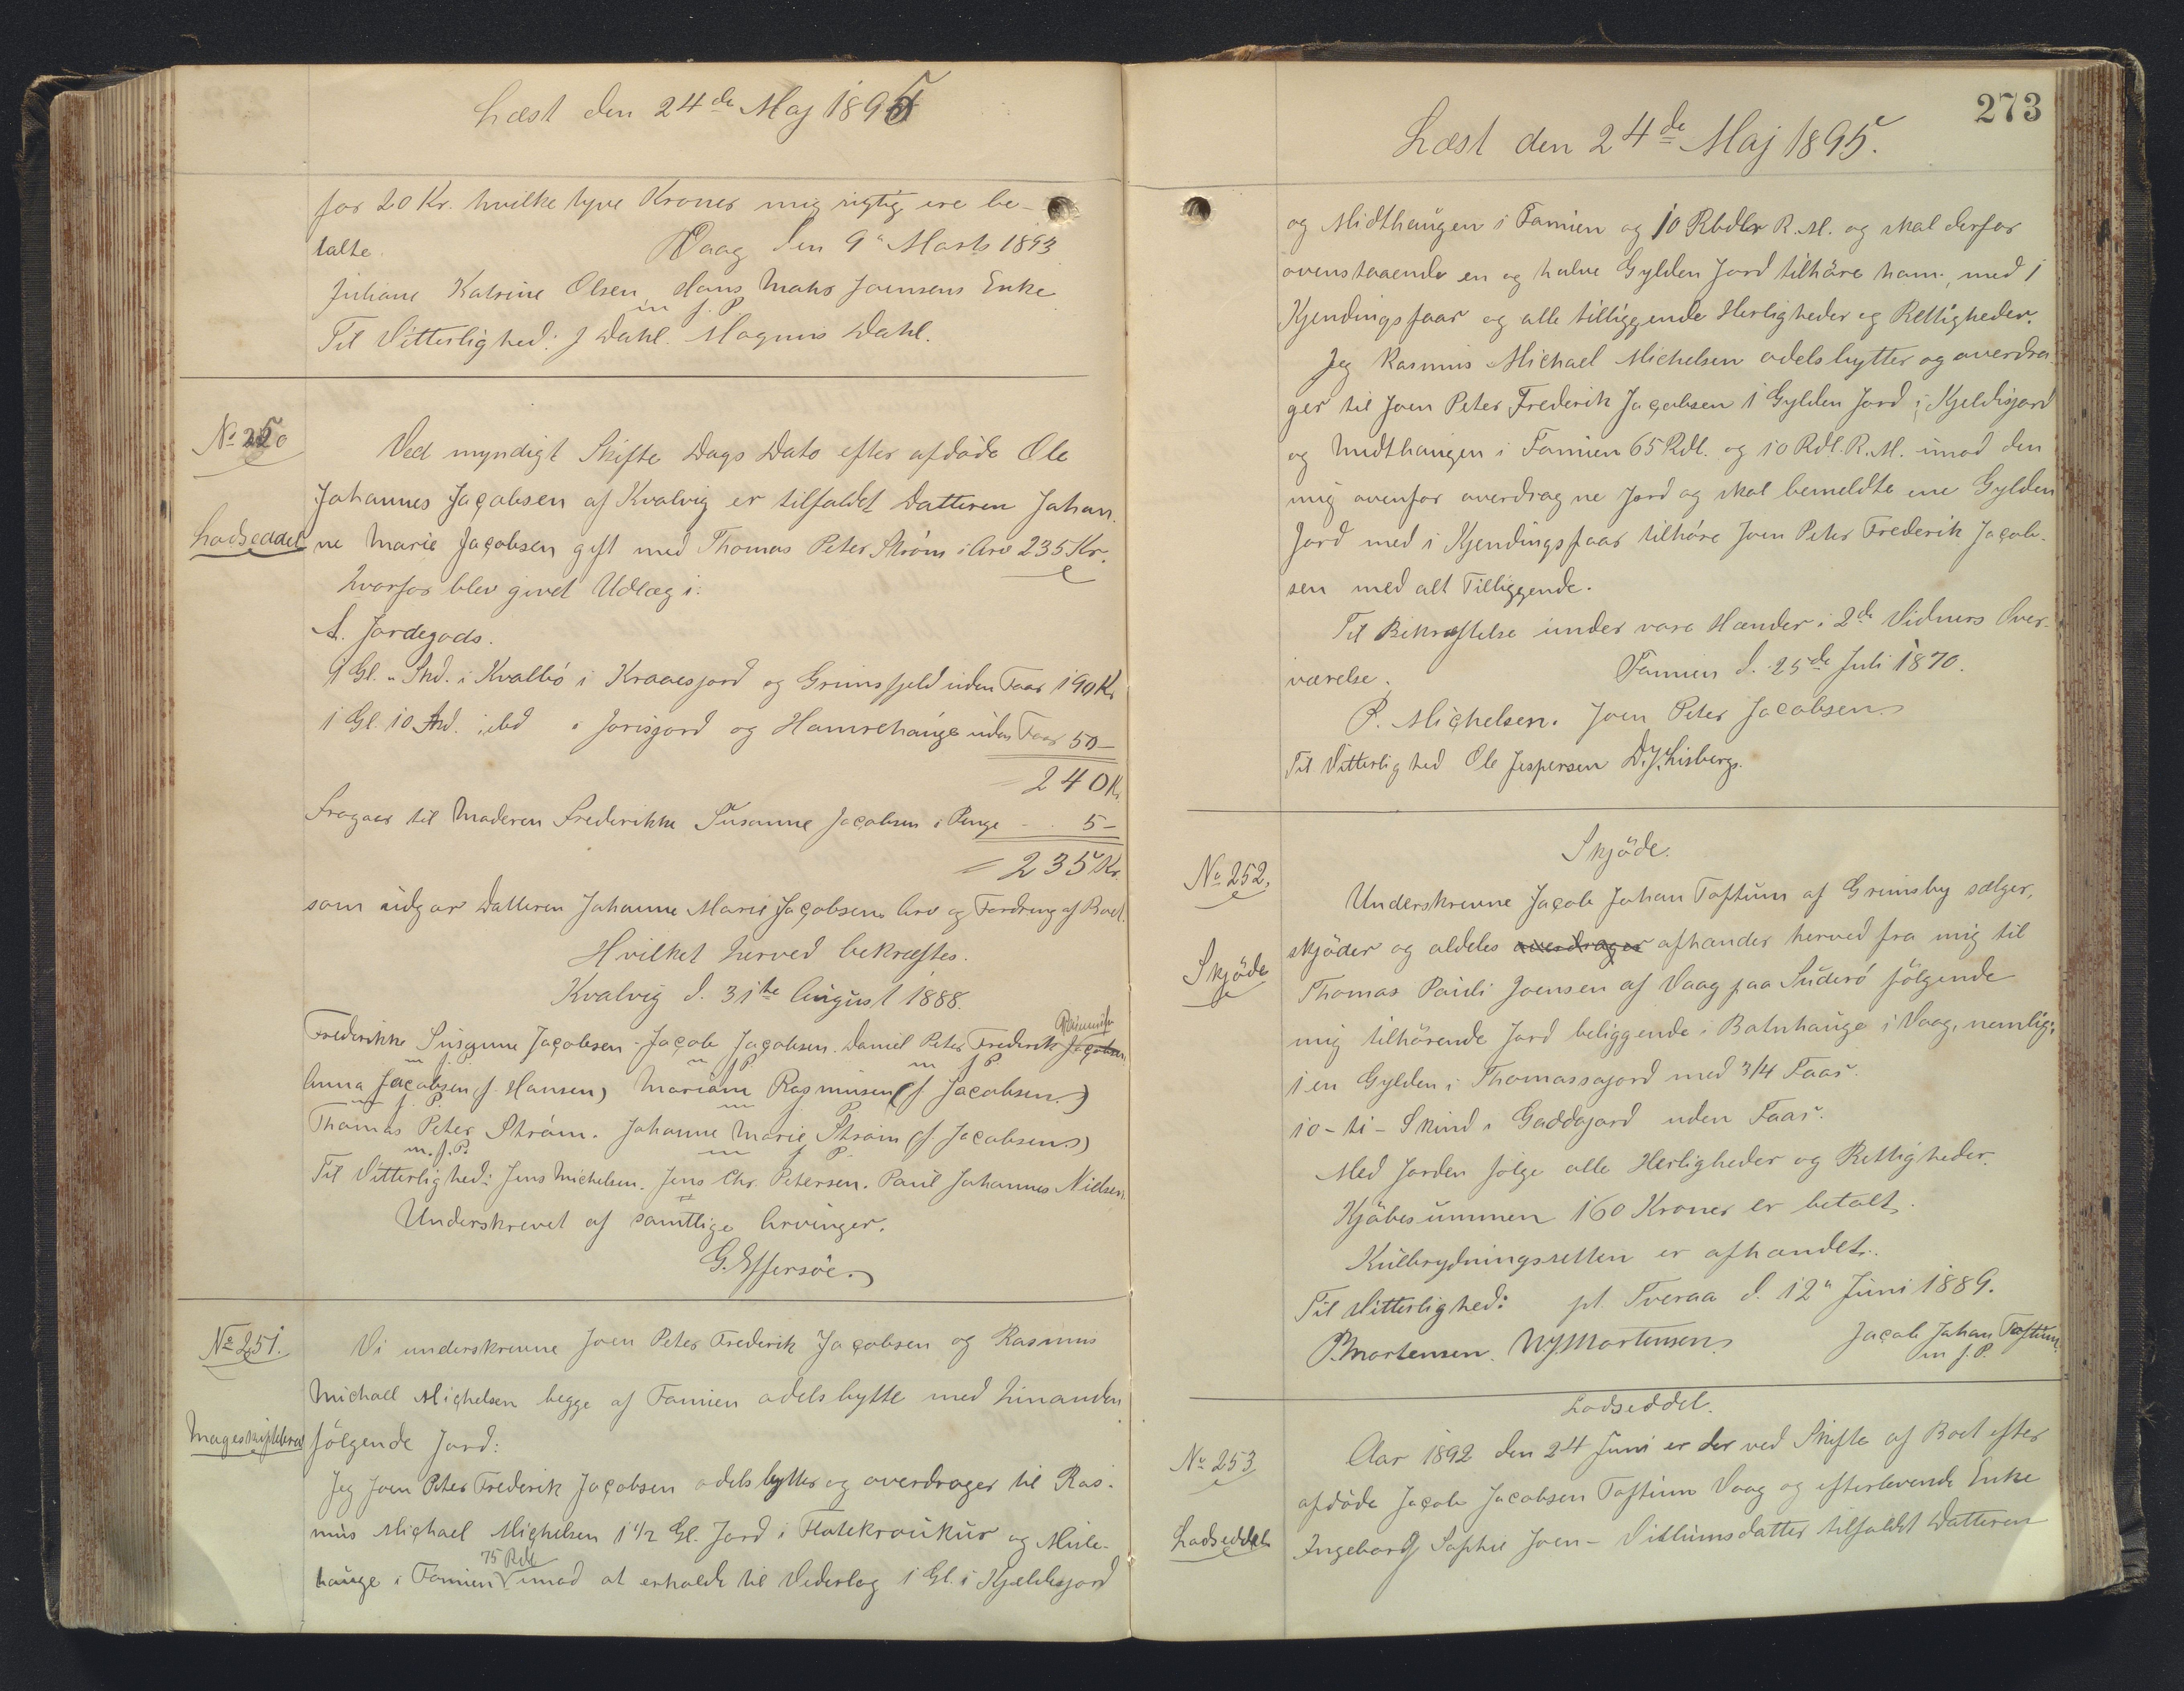 Læst den 24de Maj 1895
for 20 Kr. hvilke tyve Kroner mig rigtig ere be-
talte. Vaag den 9" Marts 1893
Juliane Katrine Olsen Hans Mohr Joensens Enke
m f. P.
Til Vitterlighed: J Dahl. Magnus Dahl.
No 250
Ved myndigt Skifte Dags Dato efter afdöde Ole
Johannes Jacobsen af Kvalvig er tilfaldet Datteren Johan-
Lodseddel
ne Marie Jacobsen gift med Thomas Peter Ström i Arv 235 Kr.
hvorfor blev givet Udlæg i:
A. Jordegods.
9 Gl. " Skd. i Kvalbö i Kraaesjord og Grimsfjeld uden Faar 190 Kr
1 Gl. 10 Skd. ibd " Jorisjord og Hamrehauge uden Faar 50 –
240 Kr
Fragaar til Moderen Frederikke Susanne Jacobsen i Penge – 5 –
= 235 Kr.
som udgör Datteren Johanne Marie Jacobsens Arv og Fordring af Boet.
Hvilket herved bekræftes.
Kvalvig d. 31te August 1888.
Frederikke Susanne Jacobsen - Jacob Jacobsen. Daniel Peter Frederik Jacobsen Rasmussen
m f. P. m f P. m f P.
Anna Jacobsen (f. Hansen) Mariane Rasmussen (f Jacobsen.)
m f. P. m P.
Thomas Peter Ström. Johanne Marie Ström (f. Jacobsen)
m. f. P. m f P.
Til Vitterlighed: Jens Michelsen. Jens Chr. Petersen. Paul Johannes Nielsen
Underskrevet af samtlige Arvinger.
G. Effersöe.
No 251.
Vi underskrevne Joen Peter Frederik Jacobsen og Rasmus
Michael Michelsen begge af Famien odelsbytte med hinanden
Mageskiftebrev
fölgende Jord:
Jeg Joen Peter Frederik Jacobsen odelsbytter og overdrager til Ras-
mus Michael Michelsen 1 1/2 Gl. Jord i Flatekroukur og Mule-
75 Rdl
hauge i Famien imod at erholde til Vederlag 1 Gl. i Kjeldesjord
273
Læst den 24de Maj 1895.
og Midthaugen i Famien og 10 Rbdlr R. M. og skal derfor
ovenstaaende en og halve Gylden Jord tilhöre ham, med 1
Kjendingsfaar og alle tilliggende Herligheder og Rettigheder.
Jeg Rasmus Michael Michelsen odelsbytter og overdra-
ger til Joen Peter Frederik Jacobsen 1 Gylden Jord i Kjeldisjord
og Midthaugen i Famien 65 Rdl. og 10 Rdl. R. M. imod den
mig ovenfor overdragne Jord og skal bemeldte ene Gylden
Jord med 1 Kjendingsfaar tilhöre Joen Peter Frederik Jacob-
sen med alt Tilliggende.
Til Bekræftelse under vore Hænder i 2de Vidners Over-
værelse. Famien d. 25de Juli 1870.
P. Michelsen. Joen Peter Jacobsen
Til Vitterlighed Ole Jespersen D. J. Lisberg.
Skjöde.
No 252.
Underskrevne Jacob Johan Toftum af Grimsby sælger,
skjöder og aldeles overdrager afhænder herved fra mig til
Skjöde
Thomas Pauli Joensen af Vaag paa Suderö fölgende
mig tilhörende Jord beliggende i Botnhauge i Vaag, nemlig:
1 en Gylden i Thomassajord med 3/4 Faar.
10 - ti - Skind i Gaddajord uden Faar.
Med Jorden fölge alle Herligheder og Rettigheder.
Kjöbesummen 160 Kroner er betalt.
Kulbrydningsretten er afhændet.
Til Vitterlighed: pt. Tveraa d. 12" Juni 1889.
P. Mortensen. W. J. Mortensen Jacob Johan Toftum
m f. P.
Lodseddel.
No 253
Aar 1892 den 24 Juni er der ved Skifte af Boet efter
afdöde Jacob Jacobsen Toftum Vaag og efterlevende Enke
Lodseddel
Ingeborg Sophie Joen - Villiumsdatter tilfaldet Datteren